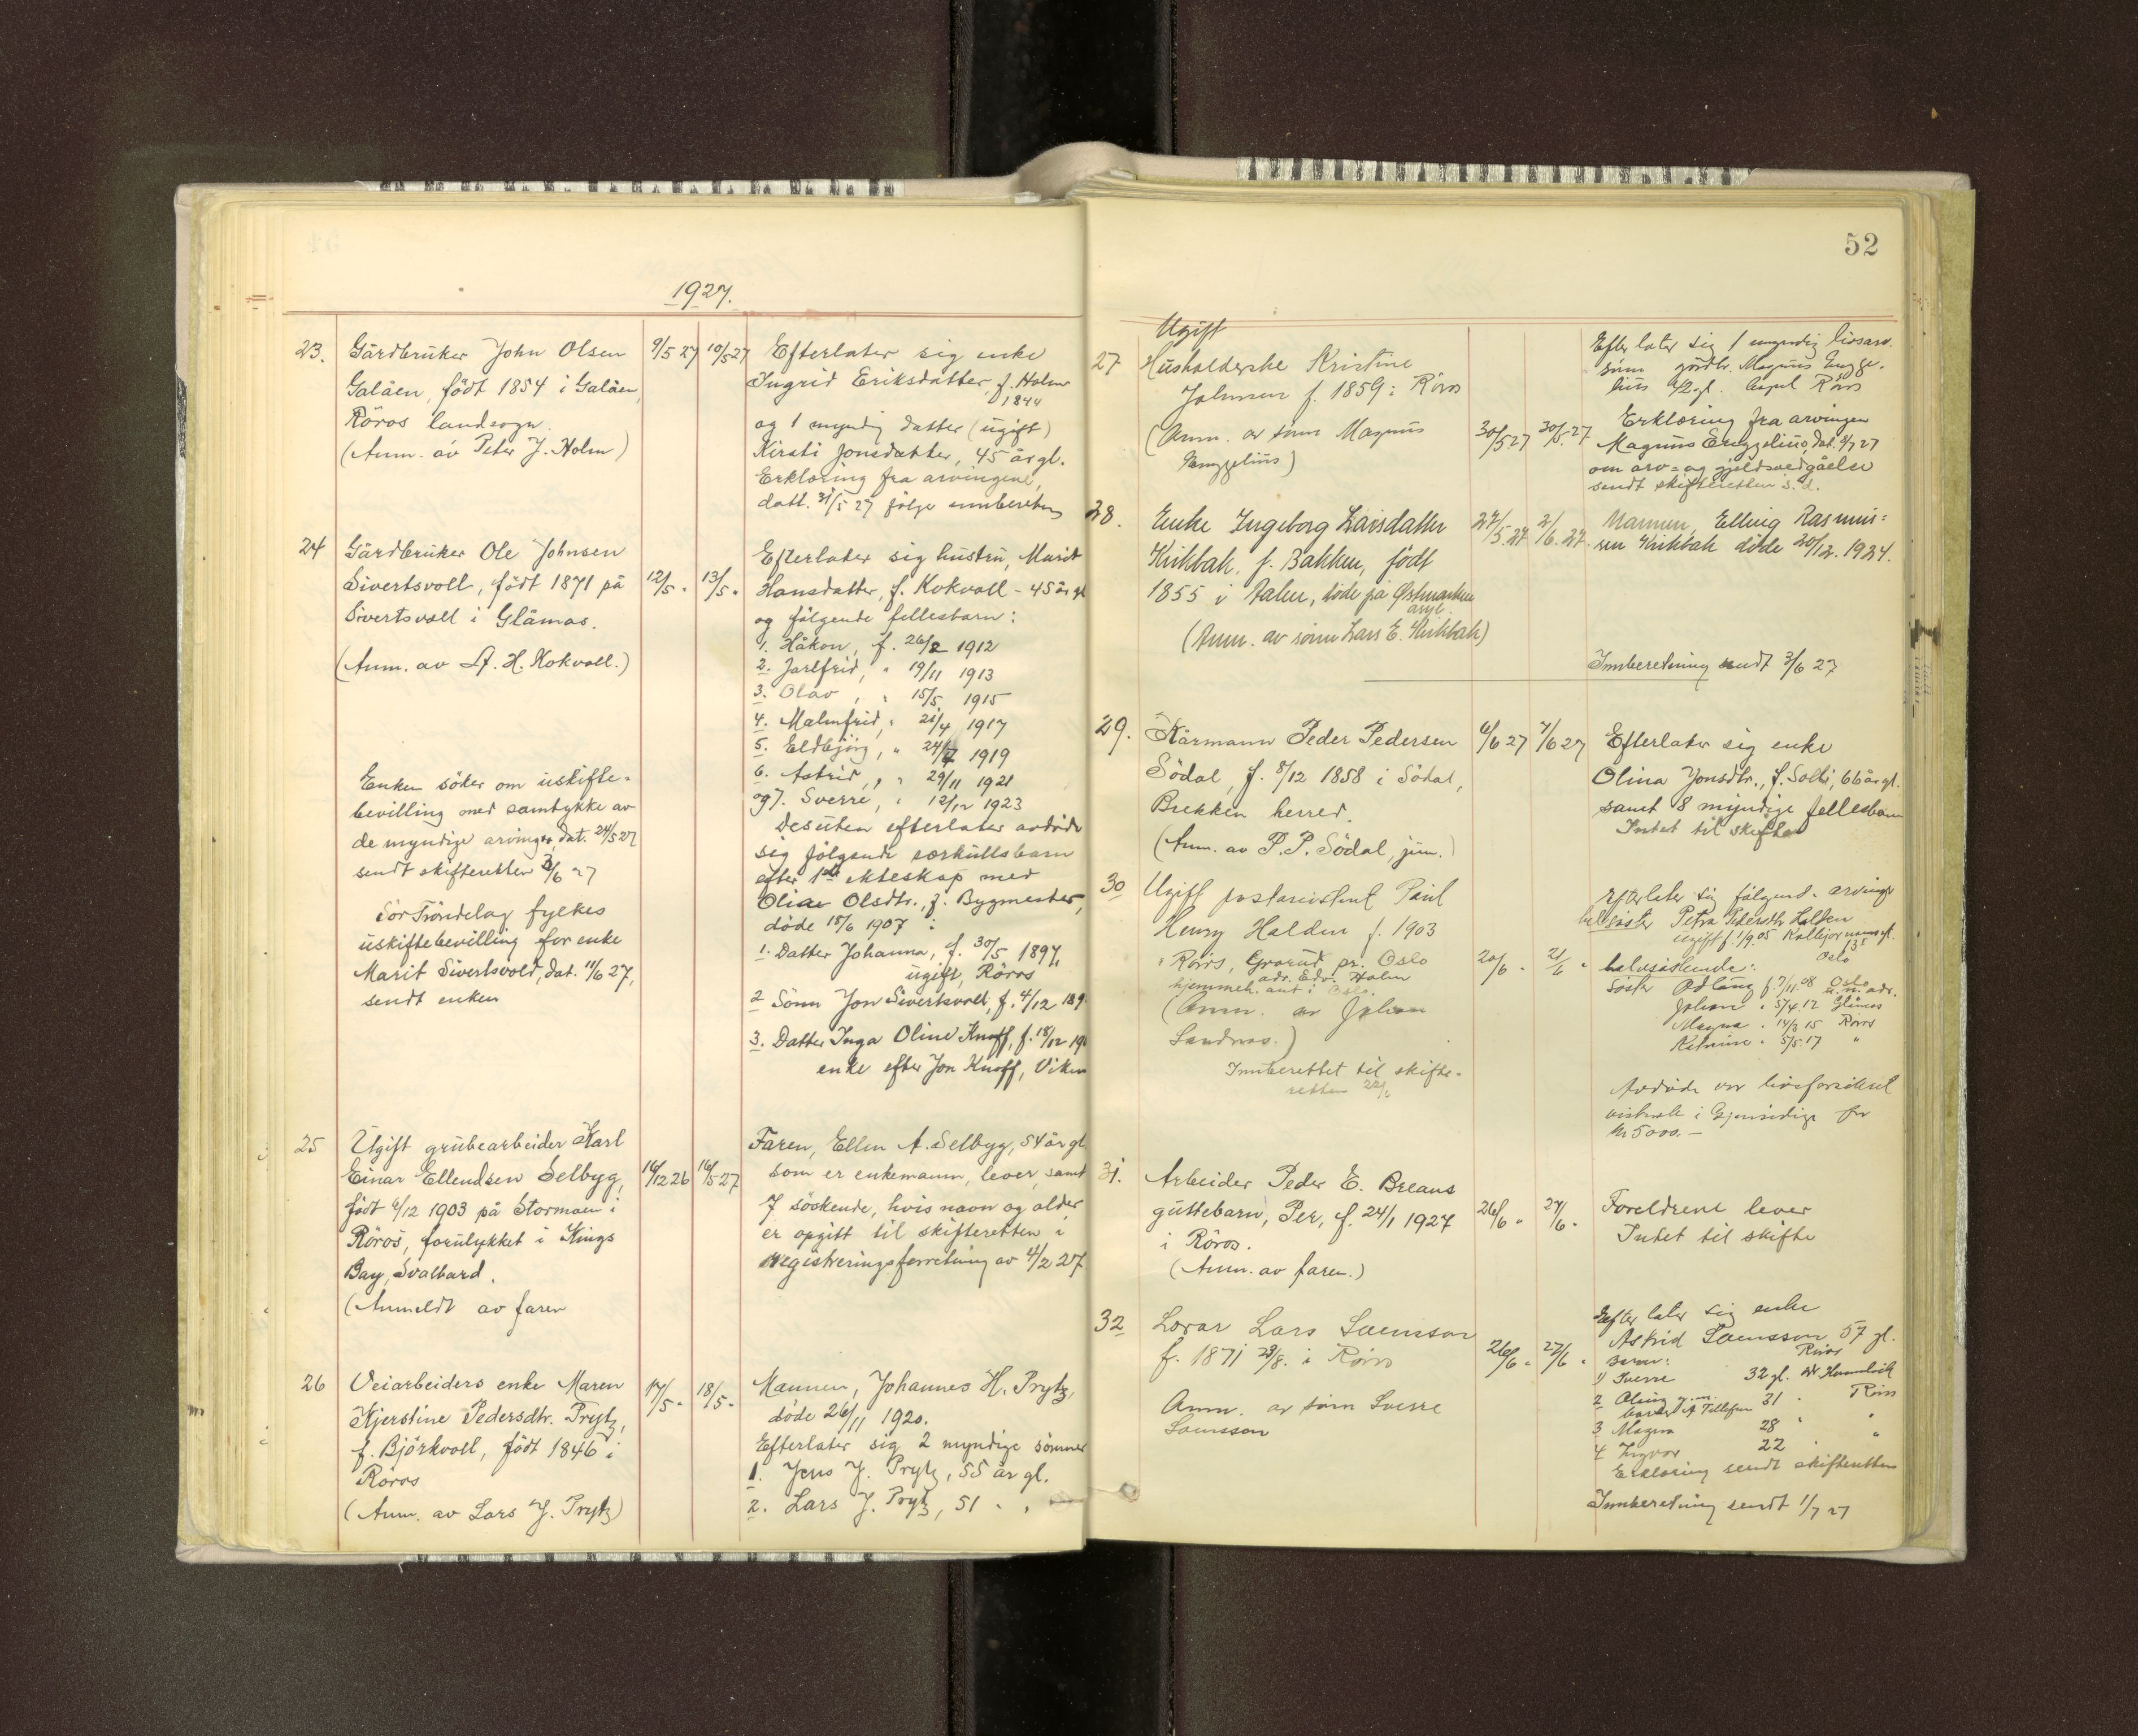 1927.
23.
Gårdbruker John Olsen
Galåen, født 1854 i Galåen,
Röros landsogn.
(Anm. av Peter J. Holm)
9/5 27
10/5 27
Efterlater sig enke
Ingrid Eriksdatter, f. Holm
1844
og 1 myndig datter (ugift)
Kirsti Jonsdatter, 45 år gl.
Erklæring fra arvingene,
datt. 31/5 27 følge innberetn
24
Gårdbruker Ole Johnsen
Sivertsvoll, født 1871 på
Sivertsvoll i Glåmos.
(Anm. av A. H. Kokvoll.)
12/5 "
13/5 "
Efterlater sig hustru, Marit
Hansdatter, f. Kokvoll - 45 år gl
og følgende fellesbarn:
1. Håkon, f. 26/2 1912
2. Jarlfrid, " 19/11 1913
3. Olav, " 15/5 1915
4. Malmfrid, " 21/4 1917
5. Eldbjørg, " 24/7 1919
6. Astrid, " 29/11 1921
og 7. Sverre, " 12/12 1923
Desuten efterlater avdøde
sig følgende særkullsbarn
efter 1ste ekteskap med
Oliae Olsdtr., f. Bygmester,
døde 15/6 1907 :
1. Datter Johanna, f. 30/5 1897,
ugift, Röros
2 Sønn Jon Sivertsvoll, f. 4/12 189
3. Datter Inga Oline Knoff, f. 18/12 190
enke efter Jon Knoff, Viken
Enken söker om uskifte-
bevilling med samtykke av
de myndige arvinger, dat. 24/5 27
sendt skifteretten 3/6 27
Sör Tröndelag fylkes
uskiftebevilling for enke
Marit Sivertsvold, dat. 11/6 27,
sendt enken
25
Ugift grubearbeider Karl
Einar Ellendsen Selbyg,
født 6/12 1903 på Stormoen i
Röros, forulykket i Kings
Bay, Svalbard.
(Anmeldt av faren
16/12 26
16/5 27
Faren, Ellen A. Selbyg, 54 år gl
som er enkemann, lever, samt
7 søskende, hvis navn og alder
er opgitt til skifteretten i
registreringsforretning av 4/2 27.
26
Veiarbeiders enke Maren
Kjerstine Pedersdtr. Prytz,
f. Björkvoll, født 1846 i
Röros
(Anm. av Lars J. Prytz)
17/5 "
18/5 "
Mannen, Johannes H. Prytz,
døde 26/11 1920.
Efterlater sig 2 myndige sønner
1. Jens J. Prytz, 55 år gl.
2. Lars J. Prytz, 51 " "
52
Ugift
27
Husholderske Kristine
Johnsen f. 1859 i Röros
(Anm. av sønn Magnus
Engzelius)
30/5 27
30/5 27
Efterlater sig 1 myndig livsarv.
sønn gårdbr. Magnus Engze-
lius 42 gl. Röros
Erklæring fra arvingen
Magnus Engzelius, dat. 4/7 27
om arv- og gjeldsvedgåelse
sendt skifteretten s. d.
28.
Enke Ingeborg Larsdatter
Kirkbak, f. Bakken, født
1855 i Dalen, døde på Østmarken
asyl.
(Anm. av sønn Lars E. Kirkbak)
27/5.27
2/6.27
Mannen, Elling Rasmus-
sen Kirkbak døde 20/12.1924.
Innberetning sendt 3/6 27
29.
Kårmann Peder Pedersen
Södal, f. 8/12 1858 i Södal,
Brekken herred.
(Anm. av P. P. Södal, jun.)
6/6 27
7/6 27
Efterlater sig enke
Olina Jonsdtr., f. Solli, 66 år gl.
samt 8 myndige fellesbarn
Intet til skifte
30
Ugift postassistent Paul
Henry Halden f. 1903
i Röros, Grorud pr. Oslo
adr. Edv. Holm
hjemmeh. ant i Oslo.
(Anm. av Johan
Sandnes.)
Innberettet til skifte-
retten 22/6
20/6 "
21/6 "
Efterlater sig følgende arvinger
helsøster Petra Pedersdtr Halden
ugift f. 1/9.05
Oslo
halvsøskende:
Søster Odlaug f. 7/11.08 Oslo
Johan " 5/4.12 Glåmos
Magna " 14/3 15 Röros
Katrine " 5/5.17 "
Avdøde var livsforsikret
i Gjensidige for
kr 5000.-
31.
Arbeider Peder E. Breaus
guttebarn, Per, f. 24/1 1927
i Röros.
(Anm. av faren.)
26/6 "
27/6 "
Foreldrene lever
Intet til skifte
32
Lars Samsson
f. 1871 23/8. i Röros
Anm. av sønn Sverre
Samsson
26/6 "
27/6 "
Efterlater sig enke
Astrid Samsson 57 gl.
Röros
barn:
1) Sverre 32 gl.
2 Olaug g. m. 31 " Röros
A Tellefsen
3 Magna 28 " "
4 Ingvar 22 "
Erklæring sendt skifteretten
Innberetning sendt 1/7 27